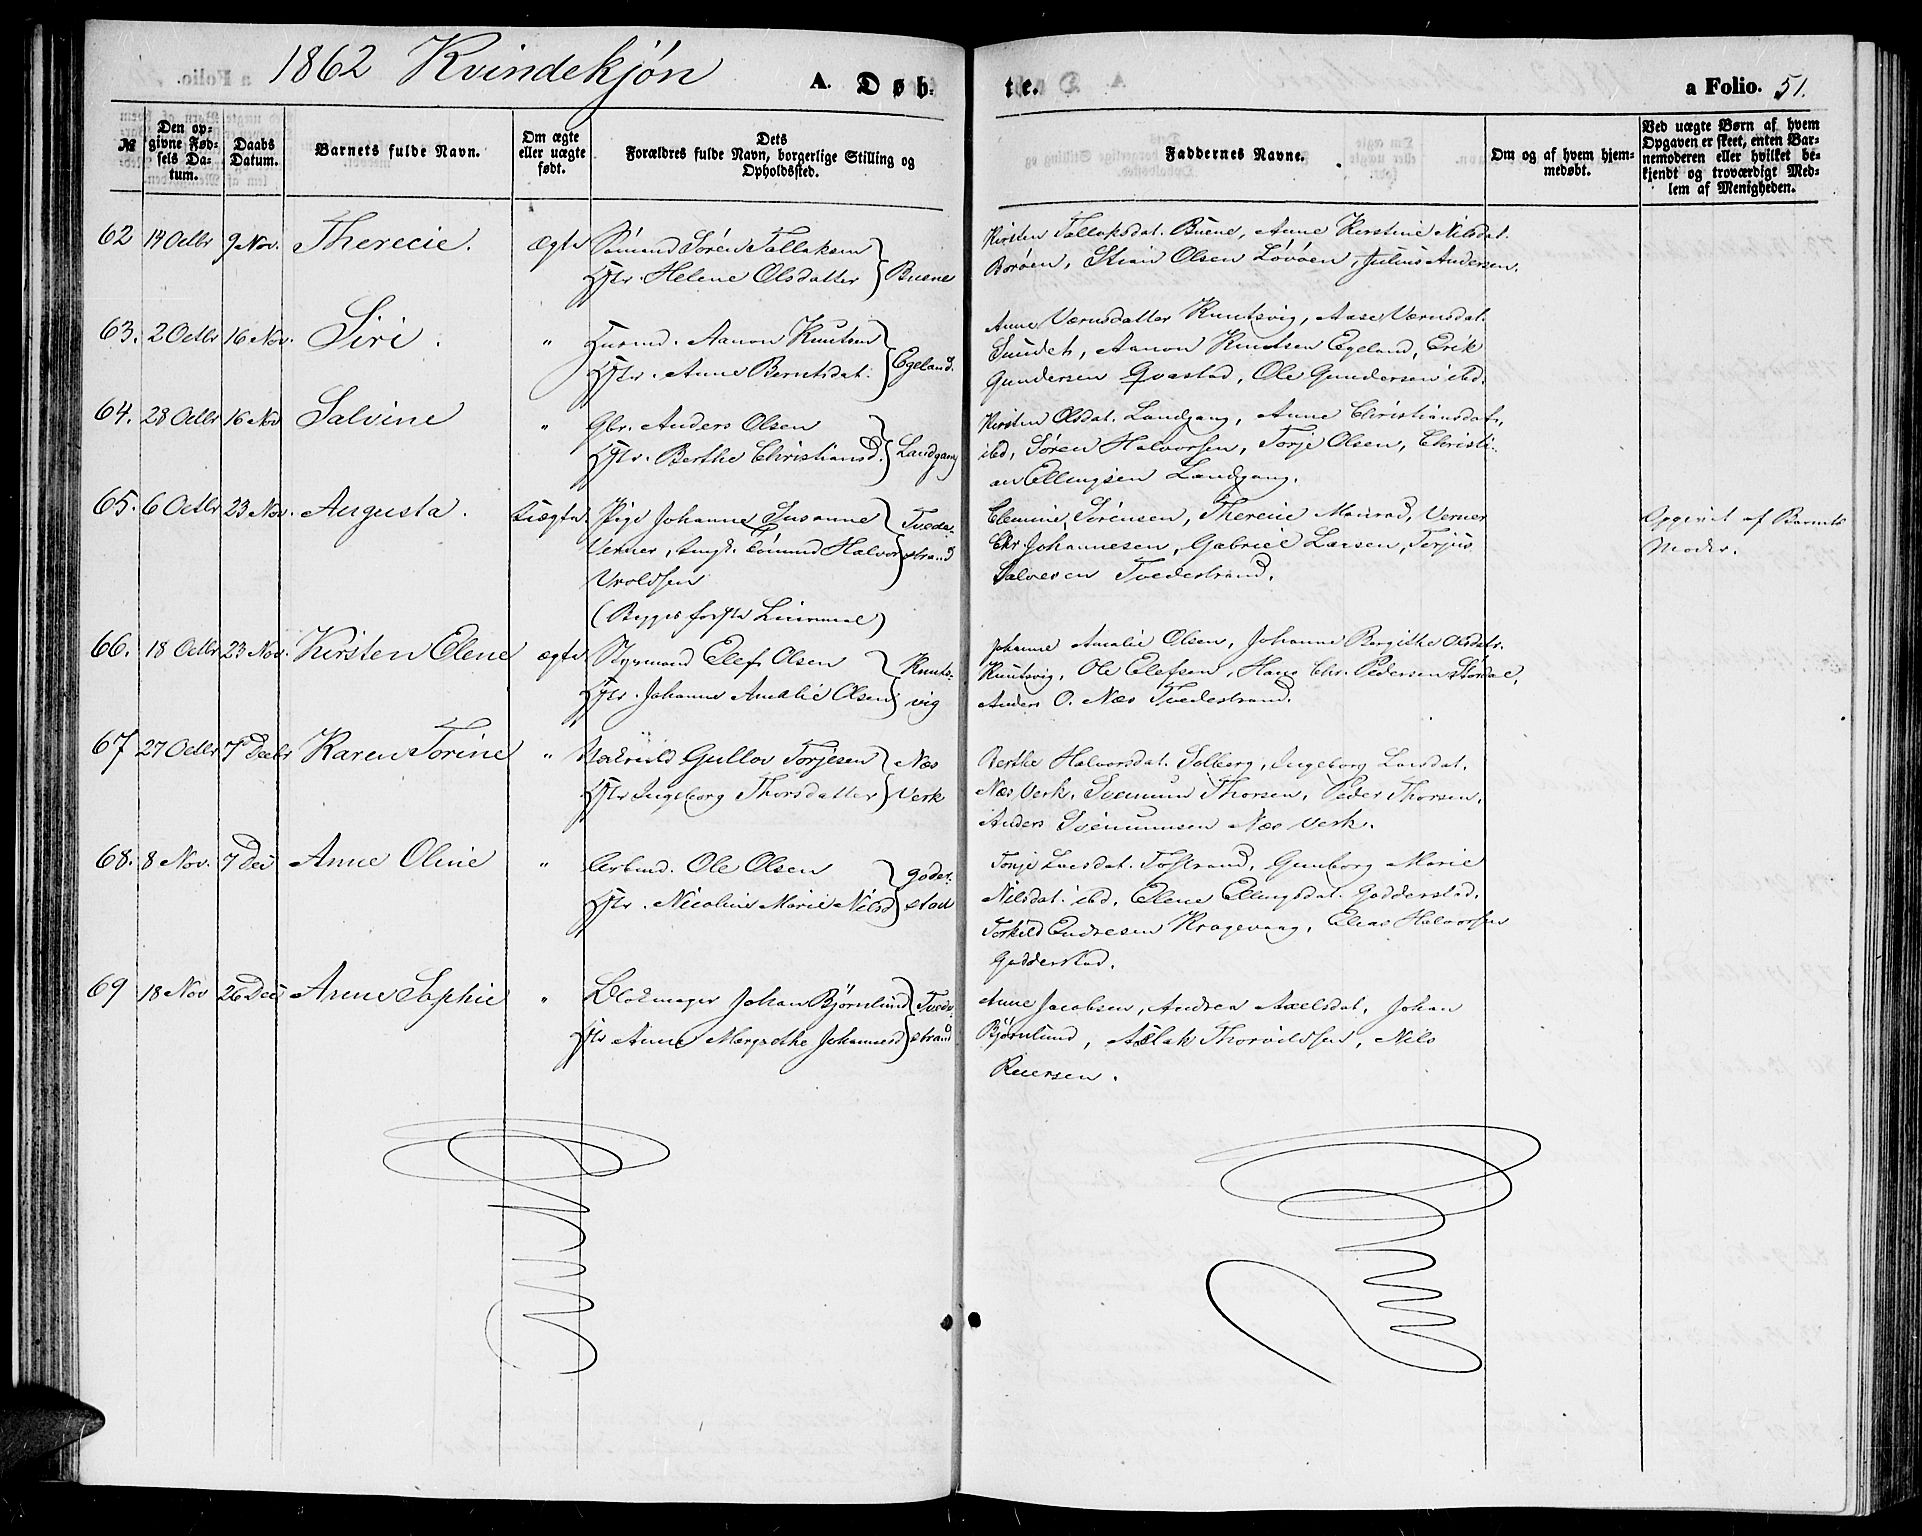 1862 Kvindekjøn A. Døbte. a Folio. 51.
№
Den opgivne Fødsels Datum.
Daabs Datum.
Barnets fulde Navn.
Om ægte eller uægte født.
Dets Forældres fulde Navn, borgerlige Stilling og Opholdssted.
Faddernes Navne.
Om og af hvem hjemmedøbt.
Ved uægte Børn af hvem Opgaven er skeet, enten Barnemoderen eller hvilket bekjendt og troværdigt Medlem af Menigheden.
62 14 Octbr 9 Nov. Therecie. ægte Sømand Søren Tallaksen
Hstr. Helene Olsdatter Buene
Kirsten Tallaksdat. Buene, Anne Kerstine Nilsdat.
Borøen, Stian Olsen Løvøen, Julius Andersen.
63. 2 Octbr 16 Nov. Siri. " Husmd. Aanon Knutsen
Hstr. Anne Berntsdat. Egeland.
Anne Værnsdatter Knutsvig, Aase Værnsdat.
Sundet, Aanon Knutsen Egeland, Erik
Gundersen Qvastad, Ole Gundersen ibd.
64. 28 Octbr 16 Nov Salvine " Gbr. Anders Olsen
Hstr. Berthe Christiansd. Landgang
Kirsten Olsdat. Landgang, Anne Christiansdatr.
ibd, Søren Halvorsen, Torje Olsen, Christi-
an Ellingsen Landgang.
65. 6 Octbr 23 Nov. Augusta. Uægte. Pige Johanne Susanne Tvede-
Verner, Ungk. Sømand Halvor strand
Uroldsen
(Begges første Leiermaal)
Clemine Sørensen, Therecie Verner
Chr Johannesen, Gabriel Larsen, Terjus
Salvesen Tvedestrand.
Opgivet af Barnets
Moder.
66. 18 Octbr 23 Nov. Kirsten Elene ægte Styrmand Elef Olsen Knuts-
Hstr. Johanne Amalie Olsen vig
Johanne Amalie Olsen, Johanne Bergithe Olsdatr.
Knutsvig, Ole Elefsen, Hans Chr. Pedersen Stordal,
Anders O. Næs Tvedestrand.
67 27 Octbr 7 Decbr Karen Torine " Gullov Torjesen Næs
Hstr Ingeborg Thorsdatter Verk
Berthe Halvorsdat. Solberg, Ingeborg Larsdat.
Næs Verk, Svenum Thorsen, Peder Thorsen,
Anders Svenumsen Næs Verk.
68. 8 Nov. 7 Dec Anne Oline " Arbmd. Ole Olsen Goder-
Hstr. Nicoline Marie Nilsd stad
Tonje Larsdat. Tostrand, Gunborg Marie
Nilsdat. ibd, Elene Ellingsdat. Godderstad,
Torkild Endresen Kragevaag, Elias Halvorsen
Godderstad.
69 18 Nov 26 Dec Anne Sophie " Blokmager Johan Bjørnlund Tvede-
Hstr Anne Margrethe Johannesd strand
Anne Jacobsen, Andrea Axelsdat, Johan
Bjørnlund, Aslak Thorvildsen, Nils
Reiersen.